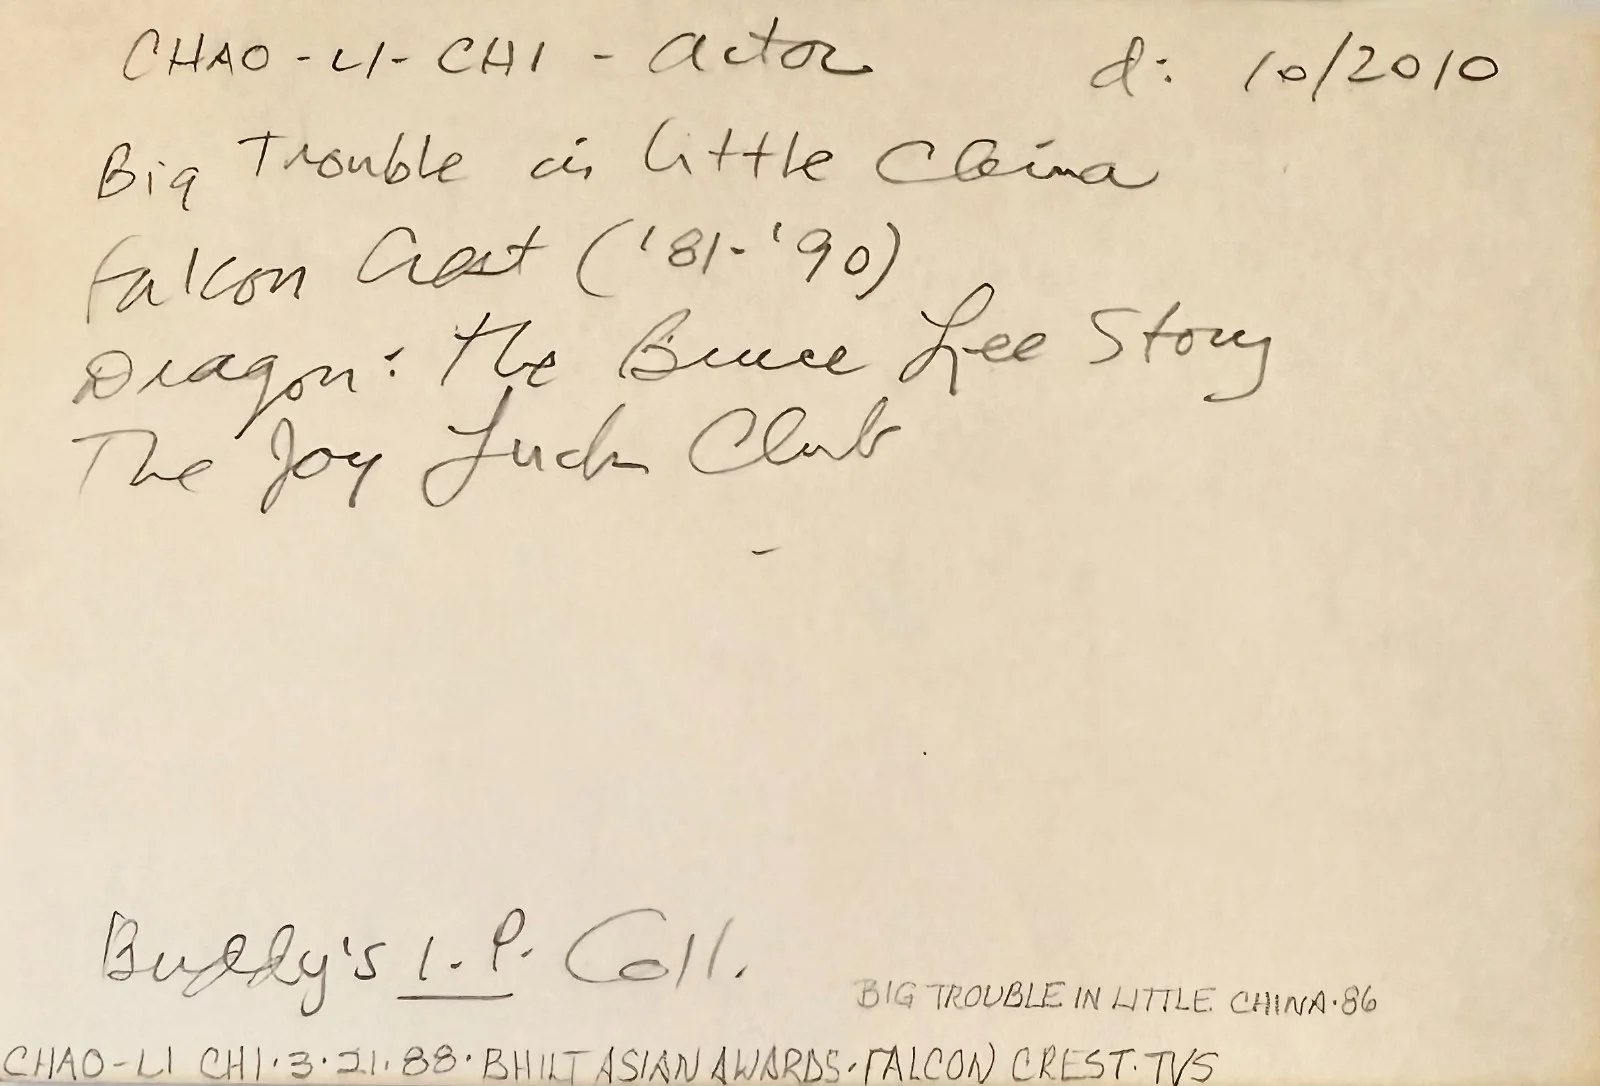 CHAO-LI-CHI - actor d: 10/2010
Big Trouble in Little China
Falcon Crest ('81-'90)
Dragon: The Bruce Lee Story
The Joy Luck Club
Buddy's I.P. Coll.
BIG TROUBLE IN LITTLE CHINA·86
CHAO-LI CHI·3·21·88·BHILT ASIAN AWARDS·FALCON CREST·TVS